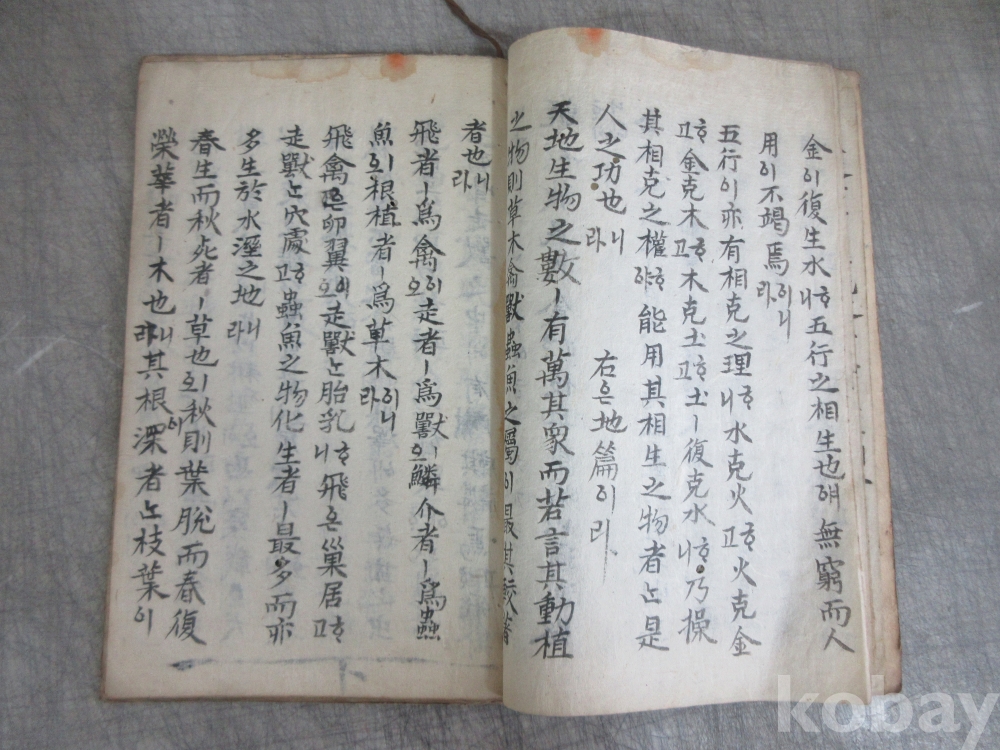 金이復生水ᄒᆞ니五行之相生也해無窮而人
用이不竭焉히니라
五行이亦有相克之理ᄒᆞ니水克火ᄒᆞ고火克金
ᄒᆞ고金克木ᄒᆞ고木克土ᄒᆞ고土ㅣ復克水ᄒᆞ니乃操
其相克之權ᄒᆞ야能用其相生之物者ᄂᆞᆫ是
人之功也니라
右은地篇이라
天地生物之數ㅣ有萬其衆而若言其動植
之物則草木禽獸蟲魚之屬이最其較著
者也ㅣ니라
飛者ㅣ爲禽히오走者ㅣ爲獸ㅣ오鱗介者ㅣ爲蟲
魚회根植者ㅣ爲草木히니라
飛禽은卵翼이오走獸ᄂᆞᆫ胎乳ᄒᆞ니飛은巢居ᄒᆞ고
走獸ᄂᆞᆫ穴處ᄒᆞ고蟲魚之物化生者ㅣ最多而亦
多生於水溼之地니라
春生而秋死者ㅣ草也회秋則葉脫而春復
榮華者ㅣ木也ㅣ니라其根深者ᄂᆞᆫ枝葉이
kobay